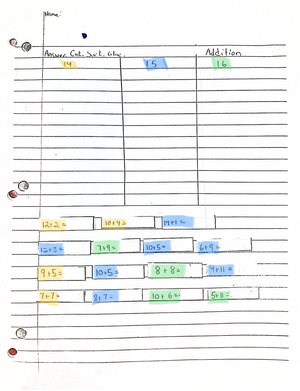 Name:
Answer. Cut. Sort. Glue. Addition
14 15 16
12+2= 10+4= 14+1=
12+3= 7+9= 10+5= 6+9=
9+5= 10+5= 8+8= 4+11=
7+7= 8+7= 10+6= 5+11=